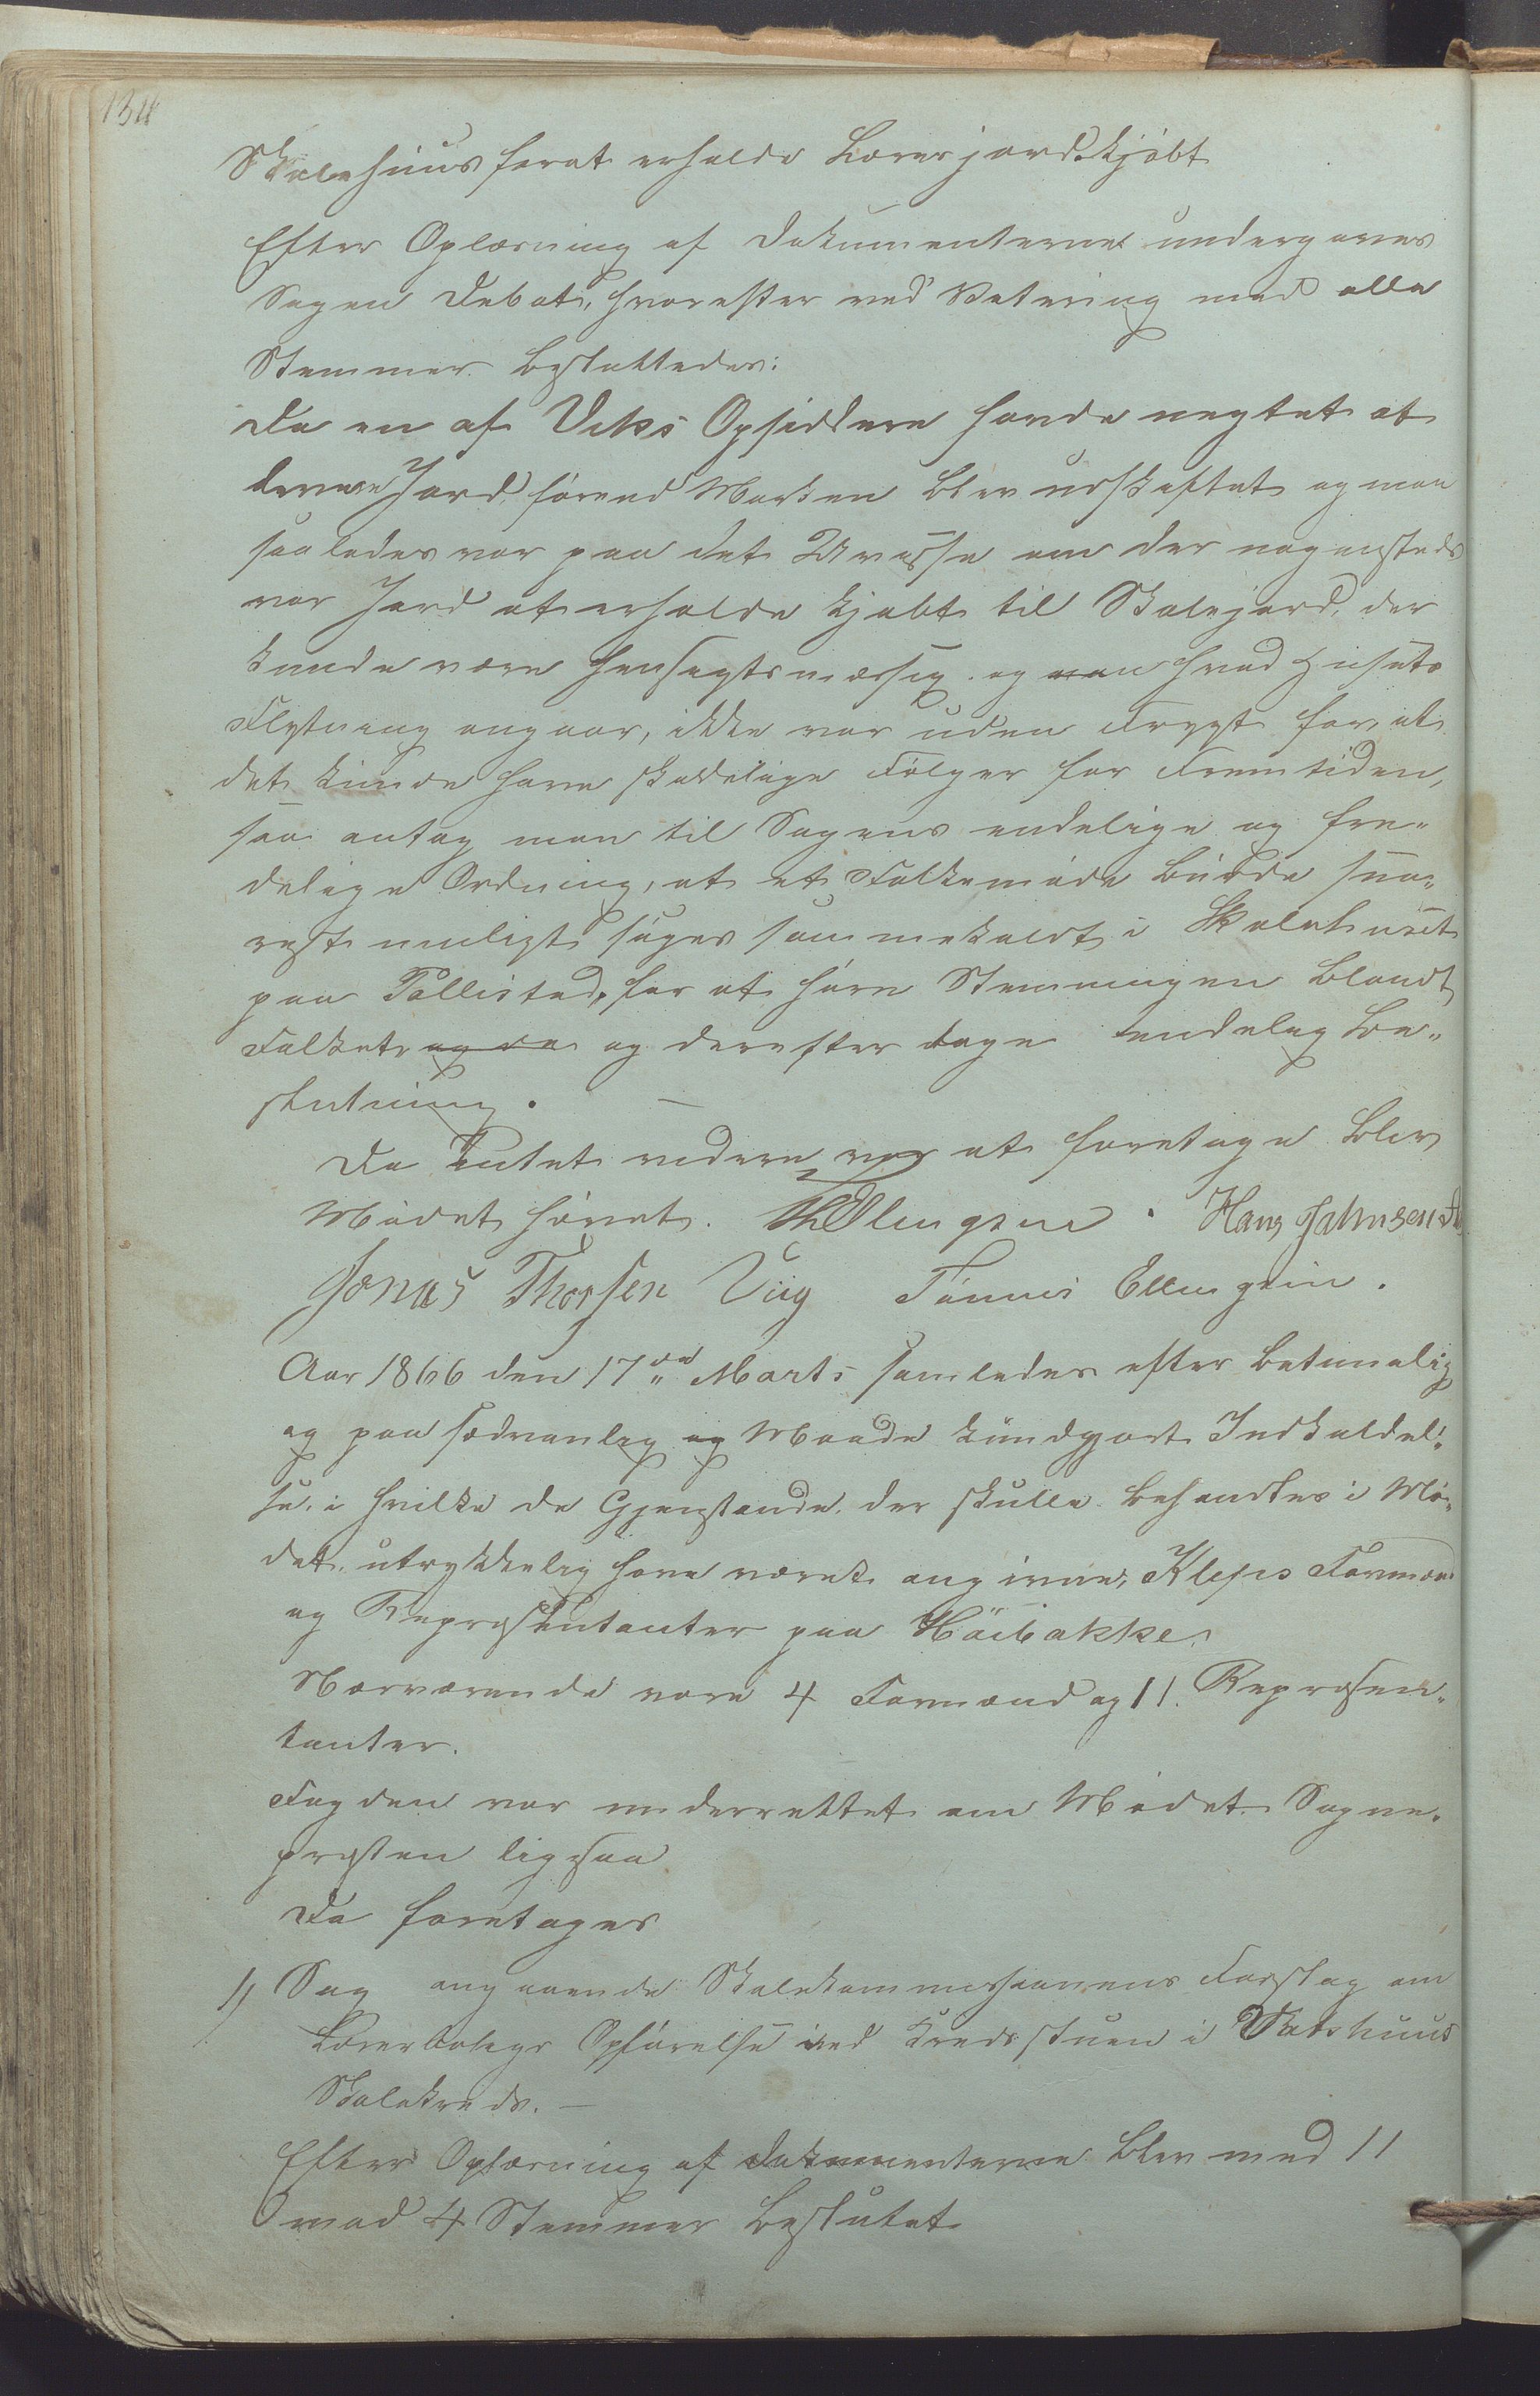 134
Skolehuus forat erholde Lærerjord kjöbt
Efter Oplæsning af Dokumenterne undergaves
Sagen Debat, hvorefter ved Votering med alle
Stemmer besluttedes:
Da en af Viks Opsiddere havde negtet at
Jord förend Marken blev udskiftet og man
saaledes var paa det Uvisse om der nogensteds
var Jord at erholde kjöbt til Skolejord, der
kunde være hensigtsmæssig og man hvad Husets
Flytning angaar, ikke var uden Frygt for, at
det kunde have skadelige Fölger for Fremtiden,
saa antog man til Sagens endelige og fre-
delige Ordning, at et Folkemöde burde sna-
rest muligt söges sammekaldt i Skolehuset
paa Pollestad, for at höre Stemningen blandt
Folket og da og derefter tage endelig Be-
slutning. —
Da Intet videre var at foretage blev
Mödet hævet. Ellingsen. Hans Jahnsen
Jonas Thorsen Viig Tönnes Ellingsen.
Aar 1866 den 17de Marts samledes efter betimelig
og paa sædvanlig og Maade kundgjort Indkaldel-
se, i hvilke de Gjenstande, der skulle behandles i Mö-
det, udtrykkelig have været angivne, Kleps Formænd
og Repræsentanter paa Höibakke.
Nærværende vare 4 Formænd og 11 Repræsen-
tanter.
Fogden var underrettet om Mödet. Sogne-
præsten ligesaa
Da foretages
1) Sag angaaende Skolekommissionens Forslag om
Lærerboligs Opförelse ved Kredsstuen i
Skolekreds. —
Efter Oplæsning af Dokumenterne blev med 11
mod 4 Stemmer besluttet